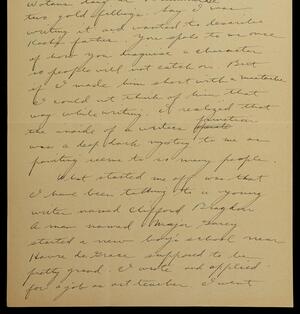 two gold fillings. Say I was
writing it and wanted to describe
father. You spoke to us once
of how you disguise a character
so people will not catch on. But
if I made him short with a mustache
I could not think of him that
way while writing. I realized that
the inside of a writers function
was a deep dark mystery to me as
painting seems to so many people.
What started me off was that
I have been talking to a young
writer named Clifford Bragdon
A man named Major
started a new boy's school near
Havre de Grace supposed to be
pretty grand. I wrote and applied
for a job as art teacher. I went